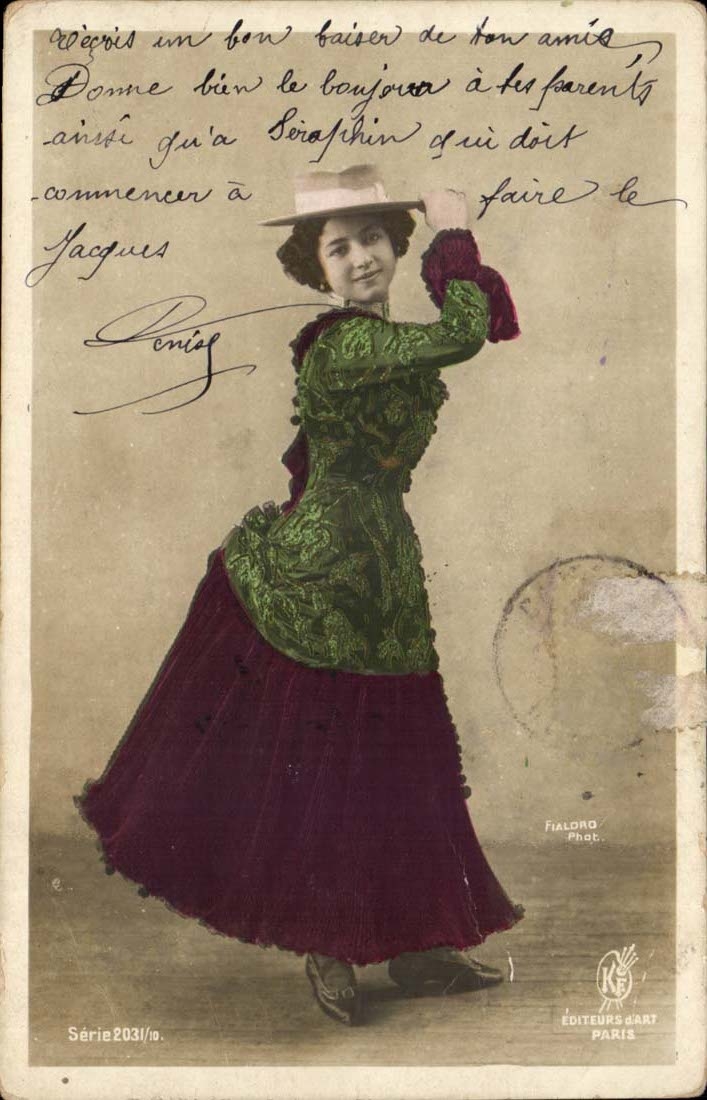 Reçois un bon baiser de ton amie
Donne bien le bonjour à tes parents
ainsi qu'a Séraphin qui doit
commencer à faire le
Jacques
Denise
FIALDRO
Phot.
KF
ÉDITEURS d'ART
PARIS
Série 2031/10.